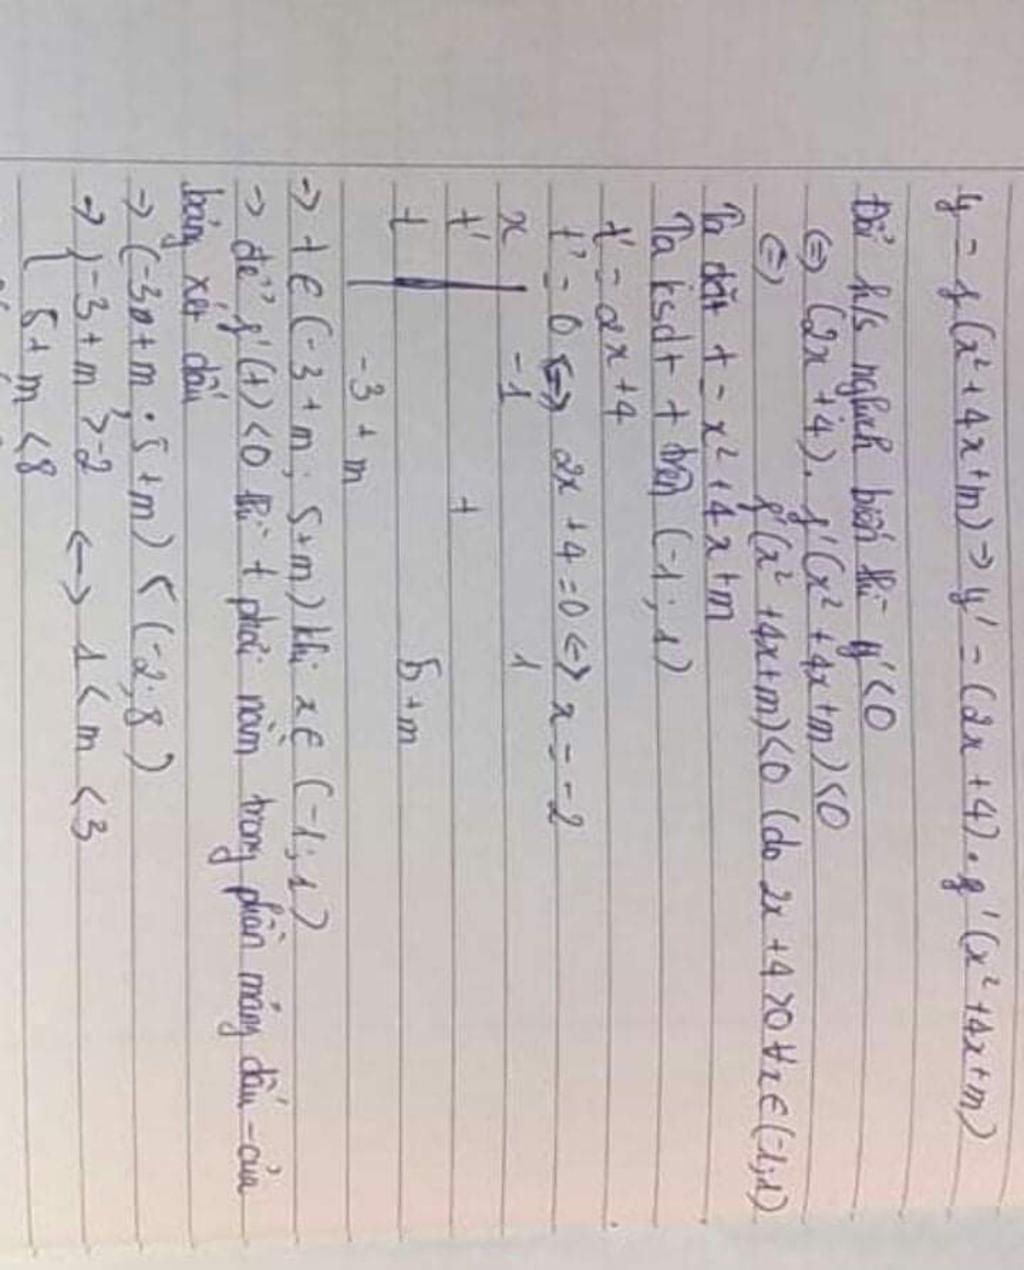 y = f(x² + 4x + m) → y' = (2x + 4). f'(x² + 4x + m)
Để h/s nghịch biến thì y' < 0
⇔ (2x + 4). f'(x² + 4x + m) < 0
⇔ f'(x² + 4x + m) < 0 (do 2x + 4 > 0 ∀x ∈ (-1; 1)
Ta đặt t = x² + 4x + m
Ta ksdt t trên (-1; 1)
t' = 2x + 4
t' = 0 ⇔ 2x + 4 = 0 ⇔ x = -2
x -1 1
t' +
t 5 + m
-3 + m
→ t ∈ (-3 + m; 5 + m) khi x ∈ (-1; 1)
→ để f'(t) < 0 thì t phải nằm trong phần mang dấu - của
bảng xét dấu
→ (-3 + m; 5 + m) < (-2; 8)
→ { -3 + m > -2 ↔ 1 < m < 3
5 + m < 8